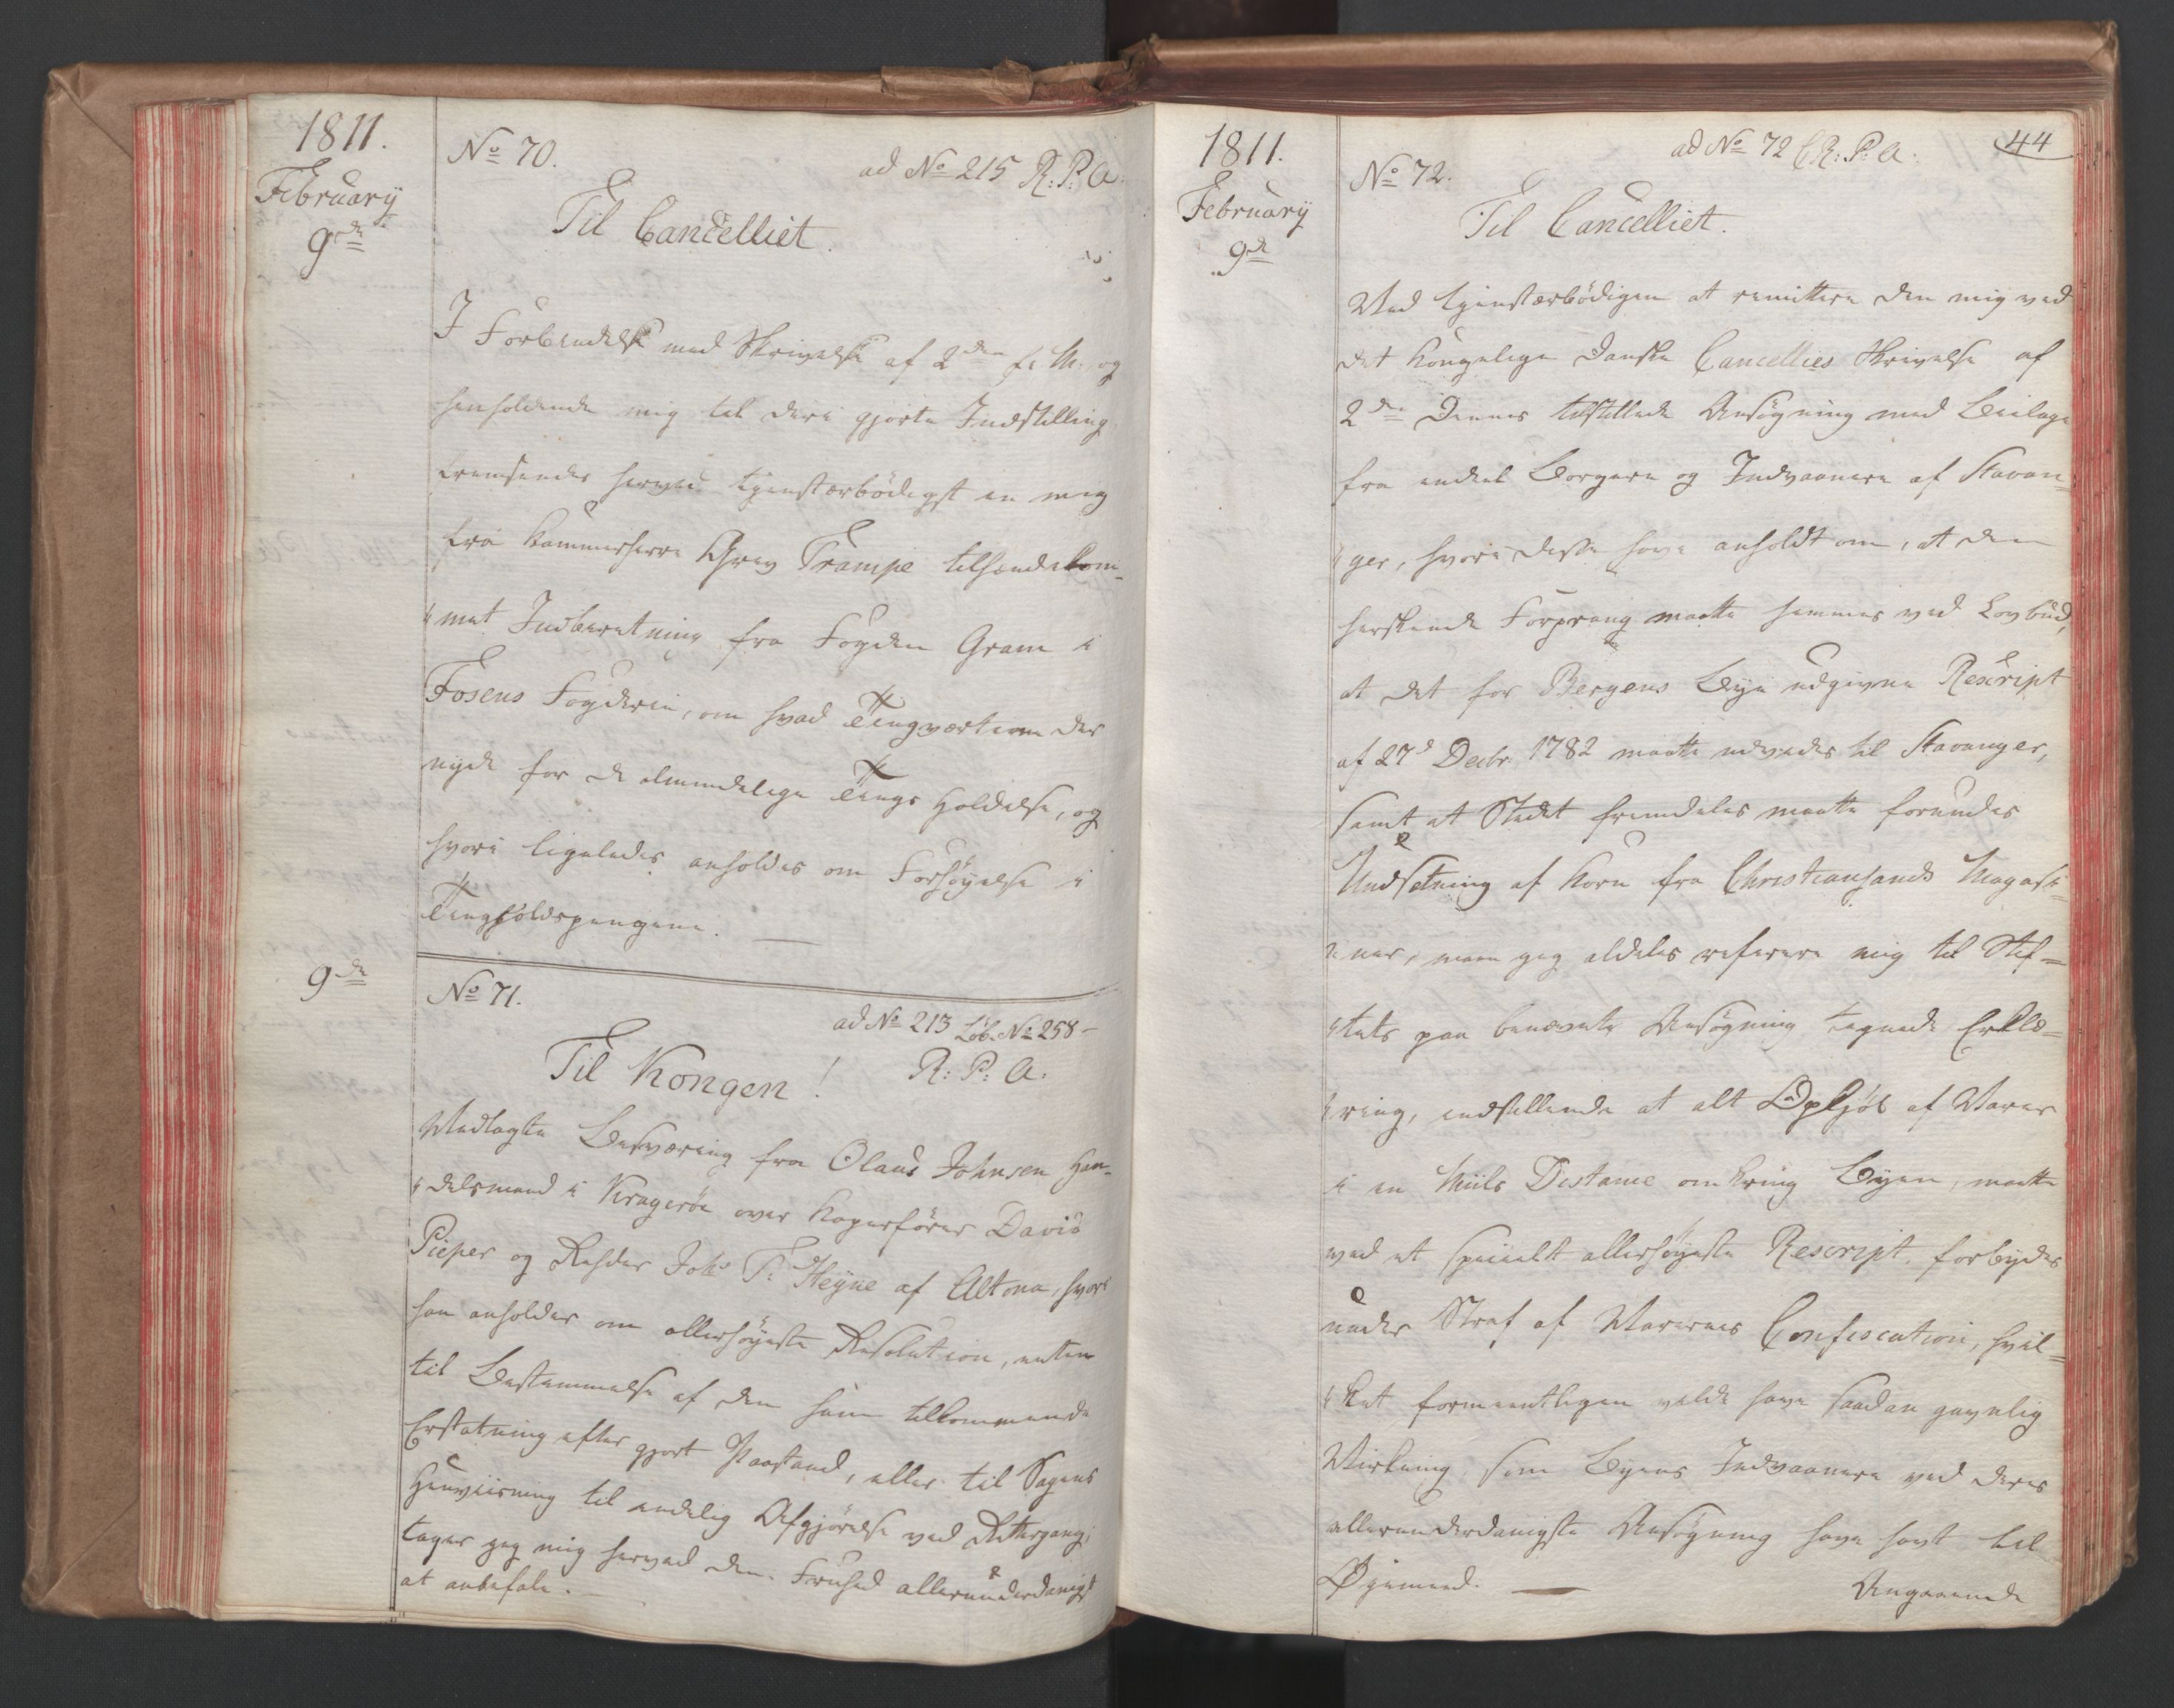 1811.
February
9de
No 70.
ad No 215 R: P: A.
Til Cancelliet.
I Forbindelse med Skrivelse af 2den f. M. og
henholdende mig til deri gjorte Indstilling
fremsendes herved tjenstærbødigst en mig
fra Kammerherre Grev Trampe tilhændekom-
met Indberetning fra Fogden Gram i
Fosens Fogderie, om hvad Tingværterne der
nyde for de almindelige Tings Holdelse, og
hvori ligeledes anholdes om Forhøyelse i
Tingholdspengene.
9de
No 71.
ad No 213 Løb. No 258-
R: P: A.
Til Kongen!
Vedlagte Besværing fra Olaus Johnsen Han-
delsmand i Kragerøe over Kaperfører David
Pieper og Rehder Johs T: Heyne af Altona, hvori
han anholder om allerhøyeste Resolution, enten
til Bestemmelse af den ham tilkommende
Erstatning efter gjort Paastand, eller til Sagens
Henviisning til endelig Afgjørelse ved Rettergang;
tager jeg mig herved den Friehed allerunderdanigst
at anbefale.
1811.
February
9de
44
ad No 72 C R: P: A.
No 72.
Til Cancelliet.
Ved tjenstærbødigen at remittere den mig ved
det kongelige danske Cancellies Skrivelse af
2den Dennes tilstillede Ansøgning med Beilage
fra endeel Borgere og Indvaanere af Stavan-
ger, hvori disse have anholdt om, at den
herskende Forprang maatte hemmes ved Lovbud,
at det for Bergens Bye udgivne Rescript
af 27d Decbr: 1782 maatte udvides til Stavanger,
samt at Stedet fremdeles maatte forundes
Undsetning af Korn fra Christiansands Magasi-
ner, maae jeg aldeles referere mig til Stif-
tets paa benævnte Ansøgning tegnede Erklæ-
ring, indstillende at alt Opkjøb af Varer
i en Miils Distance omkring Byen, maatte
ved et specielt allerhøyeste Rescript forbydes
under Straf af Varernes Confiscation, hvil-
ket formeentligen vilde have saadan gavnlig
Virkning som Byens Indvaanere ved deres
allerunderdanigste Ansøgning have havt til
Øyemed.
Angaaende